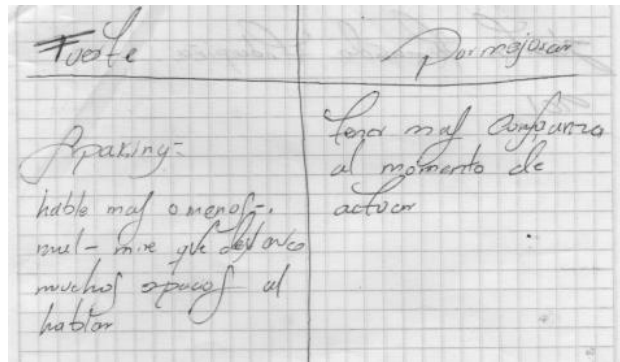 Fuerte
Por mejorar
Speaking-
hable mas o menos-.
mire que
muchos al
hablar
tener mas confianza
al momento de
actuar